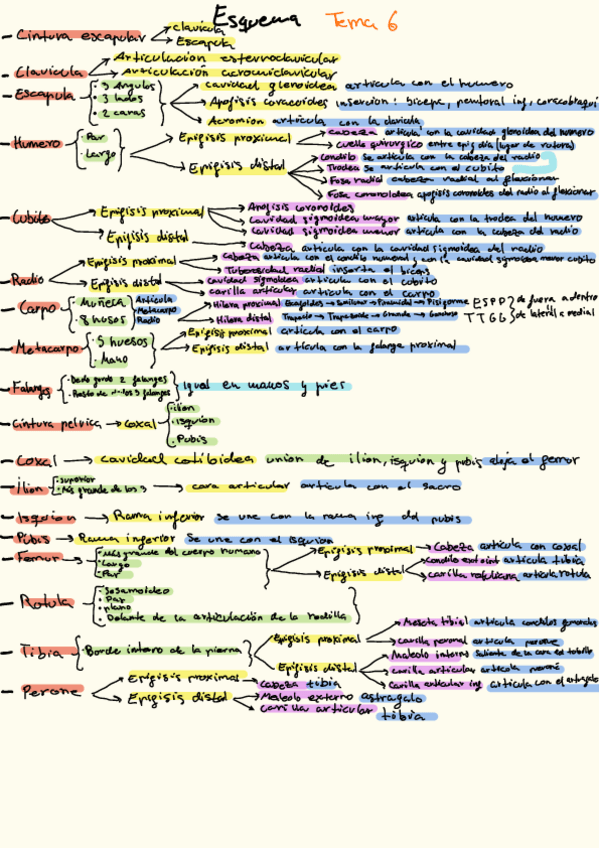 Esquema Tema 6
- Cintura escapular → clavícula
→ Escapula
- Clavicula → Articulación esternoclavicular
→ Articulación acromioclavicular
- Escapula · 3 Angulos
· 3 lados
· 2 caras
→ cavidad glenoidea articula con el humero
→ Apofisis coracoides insercion: biceps, pectoral
→ Acromion articula con la clavicula
- Humero · Par
· Largo
→ Epifisis proximal → cabeza articula con la cavidad glenoidea del humero
→ cuello quirurgico entre epi y dia (lugar de rotura)
→ Epifisis distal → Condilo se articula con la cabeza del radio
→ Troclea se articula con el cubito
→ Fosa radial cabeza radial al flexionar
→ Fosa coronoidea apofisis coronoides del radio al flexionar
- Cubito → Epifisis proximal → Apofisis coronoides
→ Cavidad sigmoidea mayor articula con la troclea del humero
→ Cavidad sigmoidea mayor articula con la cabeza del radio
→ Epifisis distal → Cabeza articula con la cavidad sigmoidea del radio
- Radio → Epifisis proximal → cabeza articula con el condilo humeral y con la cavidad sigmoidea menor cubito
→ Tuberosidad radial inserta el biceps
→ Epifisis distal → cavidad sigmoidea articula con el cubito
→ carilla articular articula con el carpo
- Carpo · Muñeca
· 8 huesos
Articula
Metacarpo
Radio
→ Hilera proximal Escafoides → Semilunar → Piramidal → Pisiforme ESPP
→ Hilera distal Trapecio → Trapezoide → Grande → Ganchoso TTGG
de fuera a dentro
de lateral a medial
- Metacarpo · 5 huesos
· Mano
→ Epifisis proximal articula con el carpo
→ Epifisis distal articula con la falange proximal
- Falanges · Dedo gordo 2 falanges
· Resto de dedos 3 falanges
Igual en manos y pies
- Cintura pelvica → coxal · ilion
· isquion
· Pubis
- Coxal → cavidad cotiloidea union de ilion, isquion y pubis aloja el femur
- Ilion · superior
· Más grande de los 3
→ cara articular articula con el sacro
- Isquion → Rama inferior se une con la rama inf del pubis
- Pubis → Rama inferior Se une con el isquion
- Femur · más grande del cuerpo humano
· Largo
· Par
→ Epifisis proximal → Cabeza articula con coxal
→ Epifisis distal → Condilo ext o int articula tibia
→ carilla rotuliana articula rotula
- Rotula · Sesamoideo
· Par
· plano
· Delante de la articulación de la rodilla
- Tibia · Borde interno de la pierna
→ Epifisis proximal → Meseta tibial articula condilos femorales
→ carilla peronal articula perone
→ Epifisis distal → Maleolo interno saliente de la cara int tobillo
→ carilla articular articula peroné
→ Carilla articular inf articula con el astragalo
- Perone → Epifisis proximal → Cabeza tibia
→ Epifisis distal → Maleolo externo astragalo
→ carilla articular tibia